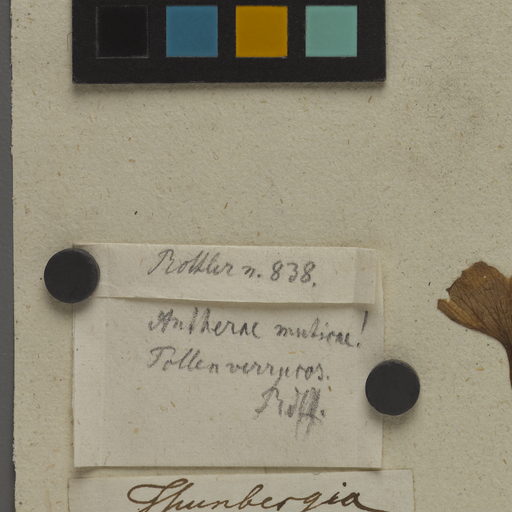 Rottler n. 838.
Antherae muticae!
Pollen verrucos.
Thunbergia